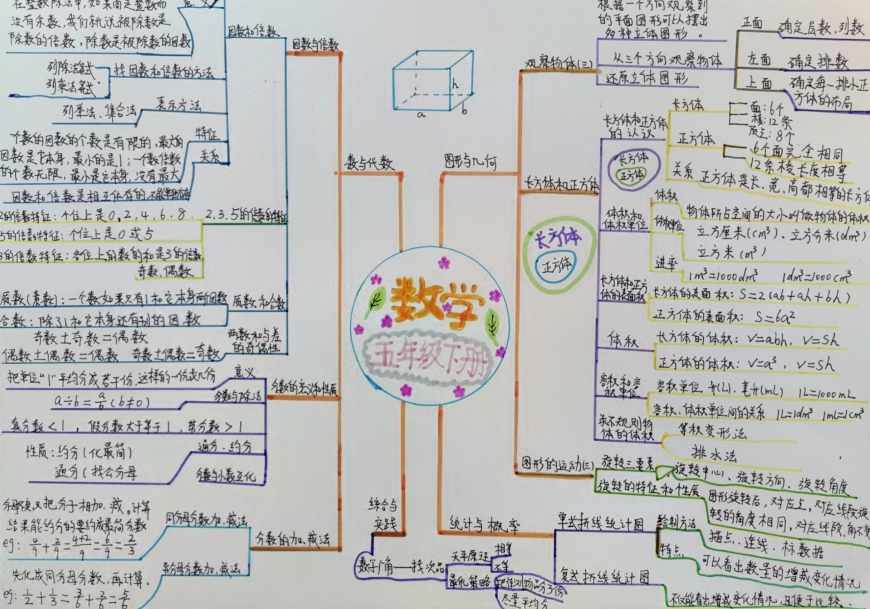 数学
五年级下册
数与代数
因数与倍数
因数和倍数
意义
在整数除法中，如果商是整数而
没有余数，我们就说被除数是
除数的倍数，除数是被除数的因数
找因数和倍数的方法
列除法算式
列乘法算式
表示方法
列举法、集合法
特征
个数的因数的个数是有限的，最大的
因数是它本身，最小的是1；一个数倍数
的个数无限，最小是它本身，没有最大
关系
因数和倍数是相互依存的，不能单独存在
2.3.5的倍数的特征
2的倍数特征：个位上是0，2，4，6，8
5的倍数特征：个位上是0或5
3的倍数特征：各位上的数的和是3的倍数
奇数，偶数
质数和合数
质数（素数）：一个数如果只有1和它本身两个因数
合数：除了1和它本身还有别的因数
两数和与差
的奇偶性
奇数±奇数=偶数
偶数±偶数=偶数 奇数±偶数=奇数
分数的意义和性质
意义
把单位"1"平均分成若干份，这样的一份或几份
分数与除法
a÷b=a/b(b≠0)
真分数<1，假分数大于等于1，带分数>1
通分、约分
性质：约分（化最简）
通分（找公分母
分数与小数互化
分数的加、减法
同分母分数加、减法
分母不变，只把分子相加、减，计算
结果能约分的要约成最简分数
eg: 4/9+2/9=4+2/9=6/9=2/3
异分母分数加、减法
先化成同分母分数，再计算。
eg: 1/2+1/3=3/6+2/6=5/6
综合与
实践
数学广角——找次品
天平原理
相等
不等
最优策略
把待测物品分3份
尽量平均分
统计与概率
单式折线统计图
绘制方法
描点、连线、标数据
特点
可以看出数量的增减变化情况
复式折线统计图
不仅能看出增减变化情况，且便于比较
图形与几何
h
a
b
观察物体(三)
根据一个方向观察到
的平面图形可以摆出
多种立体图形。
从三个方向观察物体
还原立体图形
正面 确定层数、列数
左面 确定排数
上面 确定每一排小正
方体的布局
长方体和正方体
长方体
正方体
长方体和正方体
的认识
长方体
正方体
长方体
面：6个
棱：12条
顶点：8个
正方体
6个面完全相同
12条棱长度相等
关系 正方体是长、宽、高都相等的长方体
体积和
体积单位
体积
物体所占空间的大小叫做物体的体积
体积单位
立方厘米(cm³)、立方分米(dm³)
立方米(m³)
进率
1m³=1000dm³ 1dm³=1000cm³
长方体和正方
体的表面积
长方体的表面积：S=2(ab+ah+bh)
正方体的表面积：S=6a²
体积
长方体的体积：V=abh，V=Sh
正方体的体积：V=a³，V=Sh
容积和容
积单位
容积单位：升(L)、毫升(mL) 1L=1000mL
容积、体积单位间的关系 1L=1dm³ 1mL=1cm³
求不规则物
体的体积
等积变形法
排水法
图形的运动(三)
旋转三要素
旋转中心、旋转方向、旋转角度
旋转的特征和性质
图形旋转后，对应点，对应线段旋
转的角度相同，对应线段，角不变